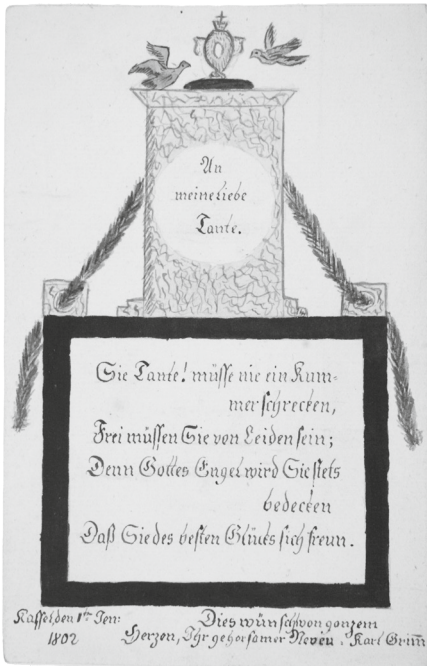 An
meine liebe
Tante.
Sie Tante! müsse nie ein Kum-
mer schrecken,
Frei müssen Sie von Leiden sein;
Denn Gottes Engel wird Sie stets
bedecken
Daß Sie des besten Glücks sich freun.
Kassel, den 1ten Jen:
1802
Dies wünscht von ganzem
Herzen, Ihr gehorsamer Neveu. Karl Grim̅